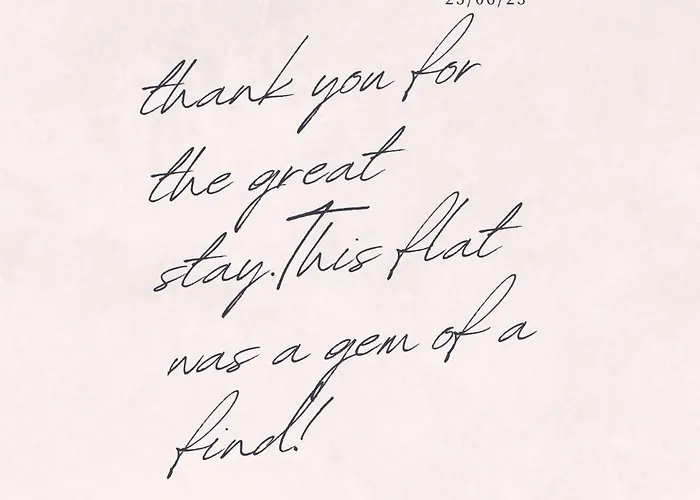 thank you for
the great
stay.This flat
was a gem of a
find!